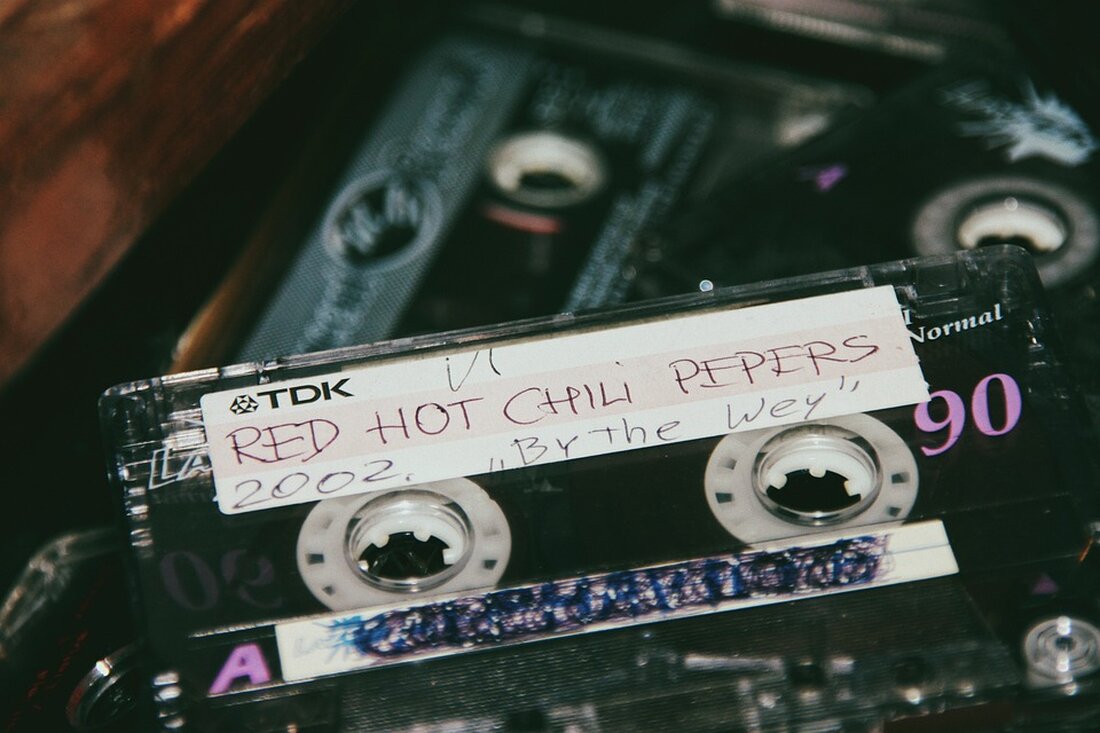 TDK
RED HOT CHILI PEPERS
2002. „By the Wey”
Normal
90
A